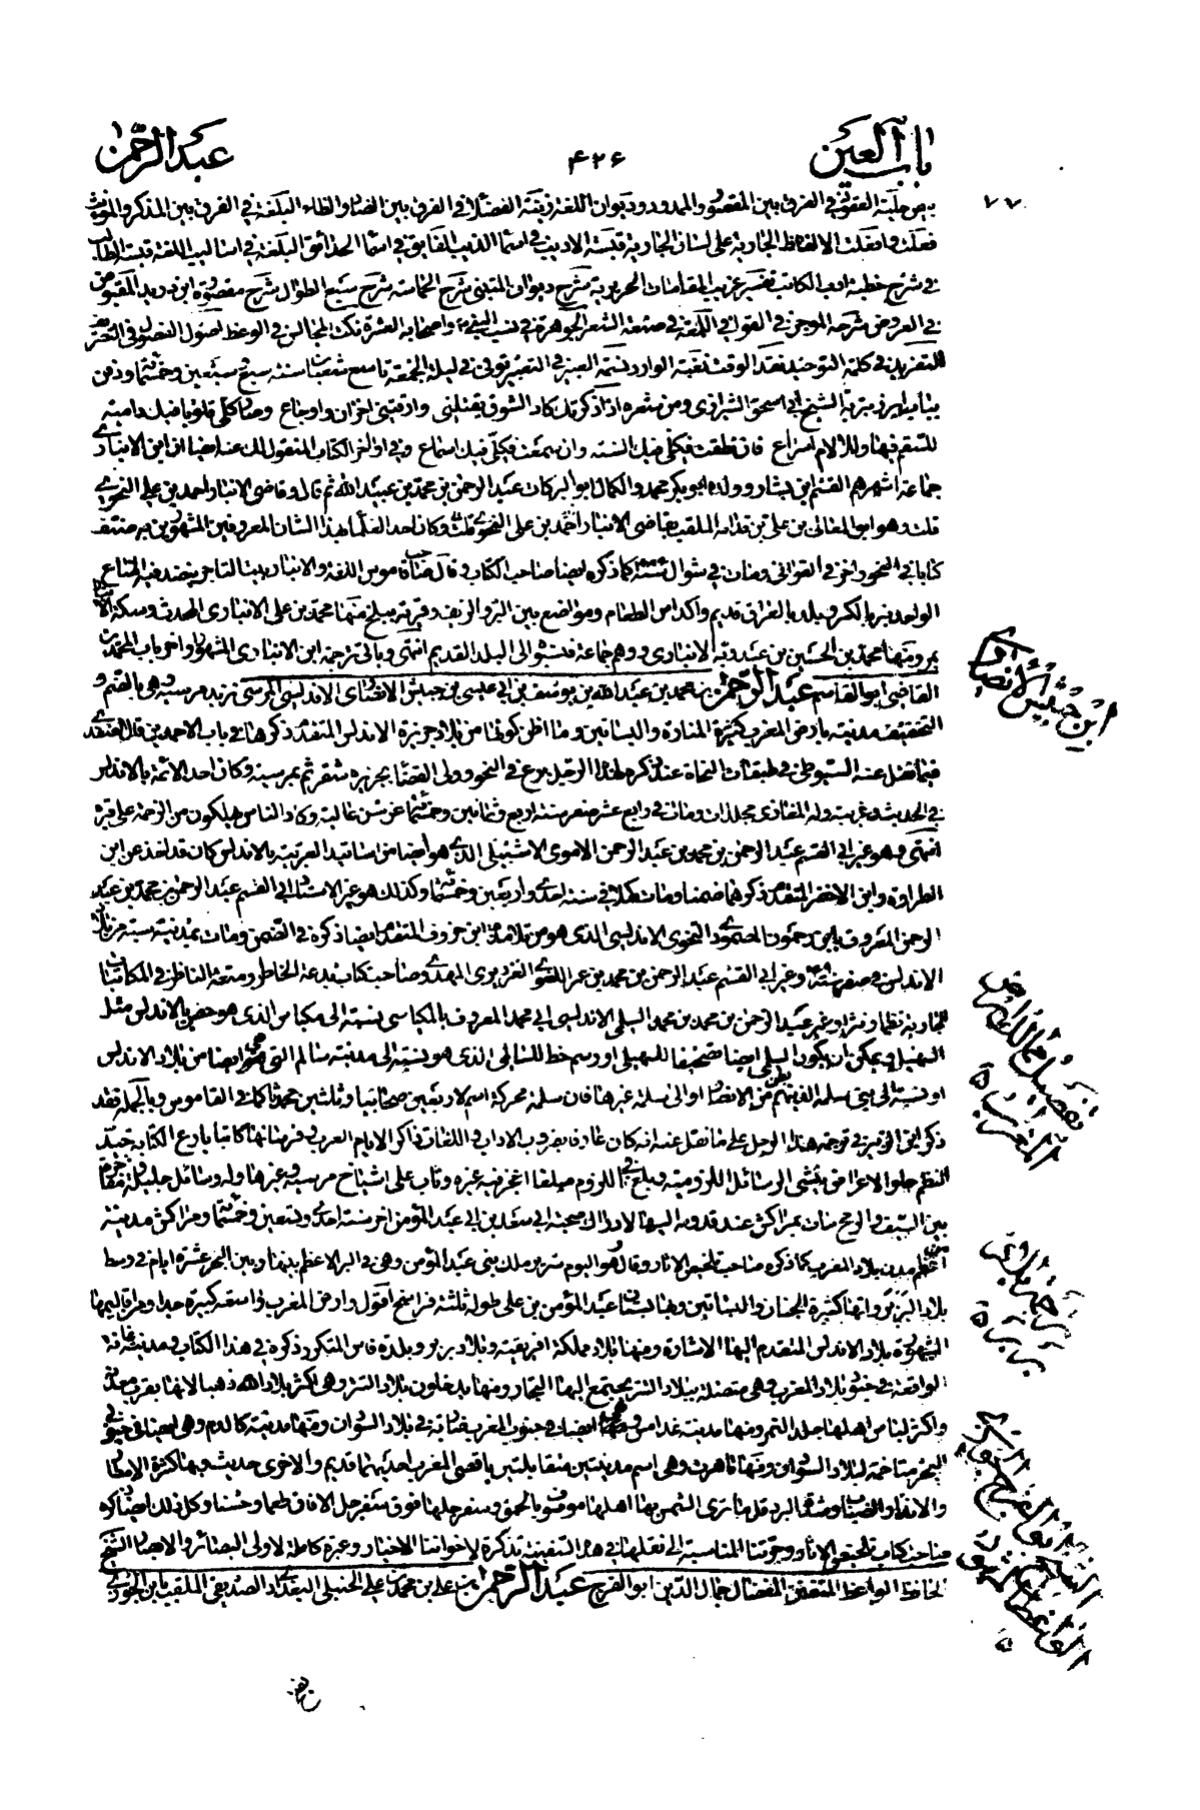 باب العين
۴۲۶
عبد الرحمن
۷۷
حلية العقود في الفرق بين المقصور والممدود ديوان اللغة زينة الفضلاء في الفرق بين الضاد والظاء البلغة في الفرق بين المذكر والمؤنث
فعلت وافعلت الالفاظ الجارية على لسان الجارية قبسة الاديب في اسماء الذيب الفايق في اسماء الحدائق البلغة في اساليب اللغة قبسة الطالب
في شرح خطبة ادب الكاتب تفسير غريب المقامات الحريرية شرح ديوان المتنبي شرح الحماسة شرح سبع الطوال شرح مقصورة ابن دريد المقبوض
في العروض شرحه الموجز في القوافي اللمعة في صنعة الشعر الجوهرة في نسب النبي واصحابه العشرة نكت المجالس في الوعظ اصول الفصول في التصوف
التفريد في كلمة التوحيد نقد الوقت نغبة الوارد نسمة العبير في التعبير توفي في ليلة الجمعة تاسع شعبان سنة سبع وسبعين وخمسمائة ودفن
بباب ابرز بتربة الشيخ ابي اسحق الشيرازي ومن شعره اذا ذكرتك كاد الشوق يقتلني وارقتني احزان واوجاع وصار كلي قلوبا فيك دامية
للسقم فيها وللالام اسراع فان نطقت فكلي فيك السنة وان سمعت فكلي فيك اسماع وفي اواخر الكتاب المنقول لك عنه ايضا ان ابن الانباري
جماعة اشهرهم القسم بن بشار وولده ابو بكر محمد والكمال ابو البركات عبد الرحمن بن محمد بن عبيد الله ثم قال وقاضي الانبار احمد بن علي النحوي
قلت وهو ابو المعالي بن علي بن قدامة الملقب بقاضي الانبار احمد بن علي النحوي قلت وكان احد العلماء بهذا الشان المعروفين المشهورين به صنف
كتابا في النحو واخر في القوافي ومات في شوال كما ذكره ايضا صاحب الكتاب وقال صاحب قاموس اللغة والانبار بيت التاجر ينضد فيه المتاع
الواحد نبر بالكسر وبلد بالعراق قديم واكداس الطعام ومواضع بين البر والريف وقرية ببلخ منها محمد بن علي الانباري المحدث وسكة الانبار
بمرو منها محمد بن الحسين بن عبدويه الانباري ووهم جماعة فنسبوا الى البلد القديم انتهى وياتي ترجمة ابن الانباري المشهور اواخر باب المحمدين
القاضي ابو القاسم عبد الرحمن بن محمد بن عبد الله بن يوسف بن ابي عيسى بن حبيش الانصاري الاندلسي المرسي نزيل مرسية وهي بالضم و
التخفيف مدينة بارض المغرب كثيرة المنارة والبساتين وما اظن كونها من بلاد جزيرة الاندلس المتقدم ذكرها في باب الاحمدين قال الصفدي
فيما نقل عنه السيوطي في طبقات النحاة عند ذكره لهذا الرجل برع في النحو وولي القضاء بجزيرة شقر ثم بمرسية وكان احد الائمة بالاندلس
في الحديث وغريبه وله المغازي مجلدات ومات في رابع عشر صفر سنة اربع وثمانين وخمسمائة عن سن عالية وكاد الناس يهلكون من الزحمة على قبره
انتهى وهو غير ابي القسم عبد الرحمن بن محمد بن عبد الرحمن الاموي الاشبيلي الذي هو ايضا من اساتيد العربية بالاندلس كان قد اخذ عن ابن
الطراوة وابن الاخضر المتقدم ذكرهما ضمنا ومات كهلا في سنة احدى واربعين وخمسمائة وكذلك هو غير الاستاد ابي القسم عبد الرحمن بن محمد بن عبد
الرحمن المعروف بابن رحمون المصمودي النحوي الاندلسي الذي هو من تلامذة ابن خروف المتقدم ايضا ذكره في الضمن ومات بمدينة سبتة من بلاد
الاندلس في صفر سنة وغير ابي القسم عبد الرحمن بن محمد بن عمر اللغوي المهدي وصاحب كتاب بدعة الخاطر ومتعة الناظر في المكاتبات
الجارية نظما ونثرا وغير عبد الرحمن بن محمد بن محمد السلمي الاندلسي ابي محمد المعروف بالمكناسي نسبة الى مكناس الذي هو حصن بالاندلس مثل
السهيل ويمكن ان يكون السلمي ايضا تصحيفا للسهيلي او رسم خط للسالمي الذي هو نسبة الى مدينة سالم التي هي ايضا من بلاد الاندلس
او نسبة الى بني سلمة الذين هم بطن من الانصار او الى سلمة غيرها فان سلمة محركة اسم لاربعين صحابيا وثلثين محدثا كما في القاموس وبالجملة فقد
ذكر ابن الزبير في ترجمة هذا الرجل على ما نقل عنه انه كان عارفا بضروب الاداب واللغات ذاكر الايام العرب فرسانها كاتبا بارع الكتابة جيد
النظم حلو الاغراض ينشي الرسائل اللزومية ويبلغ في اللزوم مبلغا اعجز فيه غيره وناب على اشياخ مرسية وغيرها وله رسائل جليلة ومفاخرة
بين السيف والرمح مات بمراكش عند قدومه اليها لادراك صحبة ابي سعد بن ابي عبد المؤمن اخر سنة احدى وتسعين وخمسمائة ومراكش مدينة
اعظم مدن بلاد المغرب كما ذكره صاحب تلخيص الاثار وقال هو اليوم سرير ملك بني عبد المؤمن وهي في البر الاعظم بينها وبين البحر عشرة ايام في وسط
بلاد البربر وانها كثيرة الجنان والبساتين وبها بستان عبد المؤمن بن علي طوله ثلثة فراسخ اقول وارض المغرب واسعة كبيرة جدا ومن اقاليمها
الشهيرة بلاد الاندلس المتقدم اليها الاشارة ومنها بلاد مملكة افريقية وبلاد بربر وبلدة فاس المتكرر ذكره في هذا الكتاب ومدينة غانة
الواقعة في جنوب بلاد المغرب وهي متصلة ببلاد التبر يجتمع اليها التجار ومنها يدخلون بلاد التبر وهي اكثر بلاد الله ذهبا لانها بقرب معدنه
واكثر لباس اهلها جلد النمر ومنها مدينة غدامس ايضا في جنوب المغرب ضاربة في بلاد السودان ومنها مدينة كالدم وهي ايضا في جنوب
البحر متاخمة لبلاد السودان ومنها تاهرت وهي اسم مدينتين متقابلتين باقصى المغرب احديهما قديم والاخرى حديث وبها كثرة الامطار
والانداء والضباب وشدة البرد قل ما ترى الشمس بها اهلها موصوف بالحمق وسفرجلها فوق سفرجل الافاق طعما وحسنا وكل ذلك ايضا ذكره
صاحب كتاب تلخيص الاثار وجرتنا المناسبة الى نقلها في هذه السفينة تذكرة لاخواننا الاخيار وعبرة كاملة لاولي البصائر والابصار الشيخ
الحافظ الواعظ المتفنن المفضال جمال الدين ابو الفرج عبد الرحمن بن علي بن محمد بن علي الحنبلي البغدادي الصديقي الملقب بابن الجوزي
ابن حبيش الانصاري
تفصيل ممالك اراضي المغرب
الشيخ ابو الفرج الجوزي
الواعظ المشهور